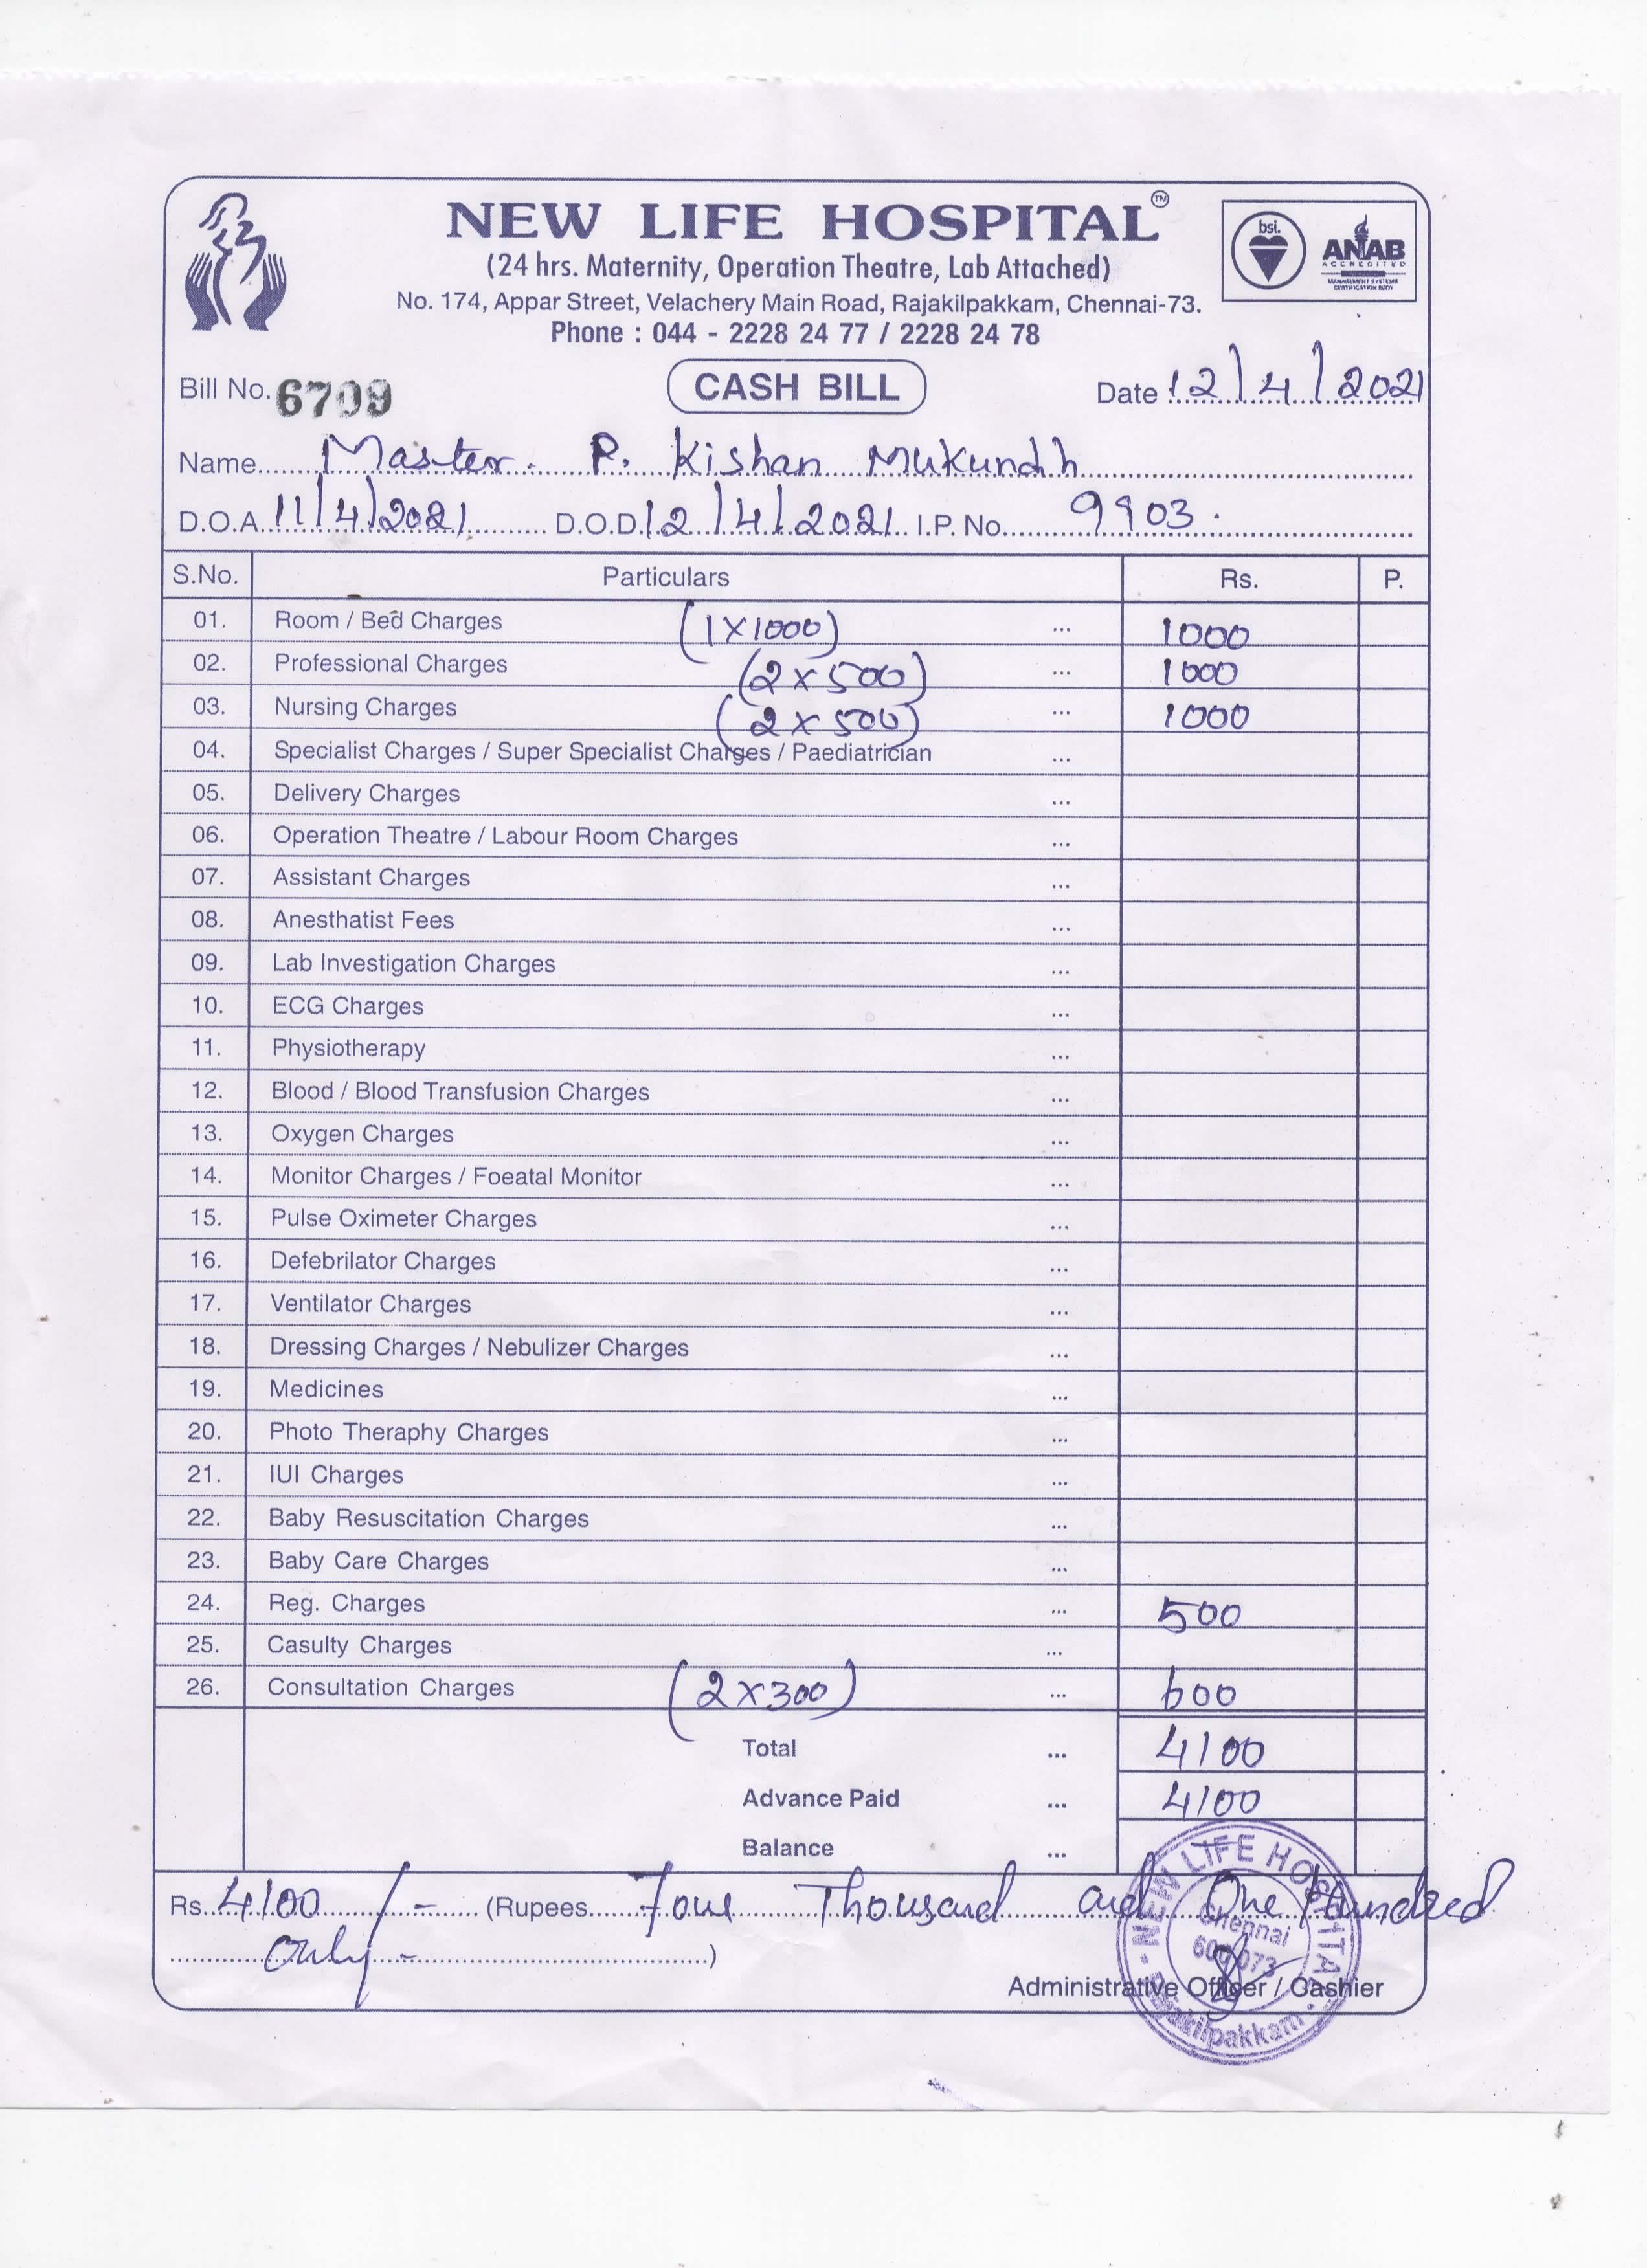 NEW LIFE HOSPITAL TM
(24 hrs. Maternity, Operation Theatre, Lab Attached)
No. 174, Appar Street, Velachery Main Road, Rajakilpakkam, Chennai-73.
Phone : 044 - 2228 24 77 / 2228 24 78
bsi.
ANAB
ACCREDITED
MANAGEMENT SYSTEMS
CERTIFICATION BODY
Bill No. 6709 CASH BILL Date 12/4/2021
Name Master. P. Kishan Mukundh
D.O.A 11/4/2021 D.O.D 12/4/2021 I.P. No. 9903.
S.No. Particulars Rs. P.
01. Room / Bed Charges (1 X 1000) ... 1000
02. Professional Charges (2 X 500) ... 1000
03. Nursing Charges (2 X 500) ... 1000
04. Specialist Charges / Super Specialist Charges / Paediatrician ...
05. Delivery Charges ...
06. Operation Theatre / Labour Room Charges ...
07. Assistant Charges ...
08. Anesthatist Fees ...
09. Lab Investigation Charges ...
10. ECG Charges ...
11. Physiotherapy ...
12. Blood / Blood Transfusion Charges ...
13. Oxygen Charges ...
14. Monitor Charges / Foeatal Monitor ...
15. Pulse Oximeter Charges ...
16. Defebrilator Charges ...
17. Ventilator Charges ...
18. Dressing Charges / Nebulizer Charges ...
19. Medicines ...
20. Photo Theraphy Charges ...
21. IUI Charges ...
22. Baby Resuscitation Charges ...
23. Baby Care Charges ...
24. Reg. Charges ... 500
25. Casulty Charges ...
26. Consultation Charges (2 X 300) ... 600
Total ... 4100
Advance Paid ... 4100
Balance ...
Rs. 4100/- (Rupees Four Thousand and One Hundred
Only - )
Administrative Officer / Cashier
NEW LIFE HOSPITAL
Chennai
600 073
Rajakilpakkam